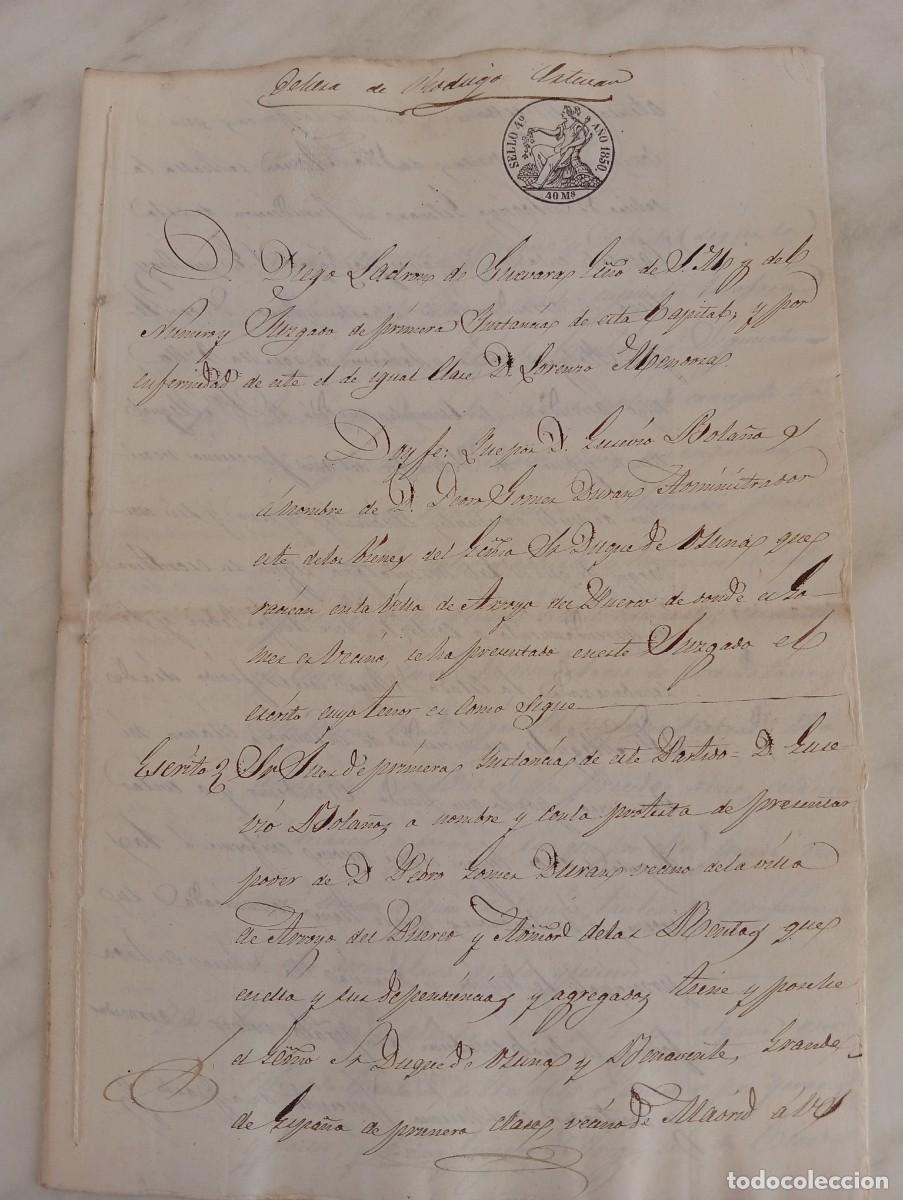 Dehesa de Rodrigo Estevan
SELLO 4º AÑO 1850.
40 Ms
D. Diego Ladron de Guevara, Esño de S. M. y del
Numero y Juzgado de primera Instancia de esta Capital, y por
enfermedad de este el de igual Clase D. Lorenzo Mendoza
Doy fe: Que por D. Eusevio Bolaños
á nombre de D. Pedro Gomez Duran Administrador
este de los bienes del Ecsmo Sr Duque de Osuna que
radican en la Villa de Arroyo del Puerco de donde el Go-
mez es vecino, se ha presentado en este Juzgado el
escrito cuyo tenor es como sigue
Escrito Sr Juez de primera Instancia de este Partido = D. Euse
vio Bolaños, a nombre y con la protesta de presentar
poder de D. Pedro Gomez Duran, vecino de la villa
de Arroyo del Puerco y Admor de las Rentas que
en ella y sus dependencias y agregados, tiene y poselle
el Ecsmo Sr Duque de Osuna y Benavente, Grande
de España de primera clase, vecino de Madrid á V.
todocoleccion